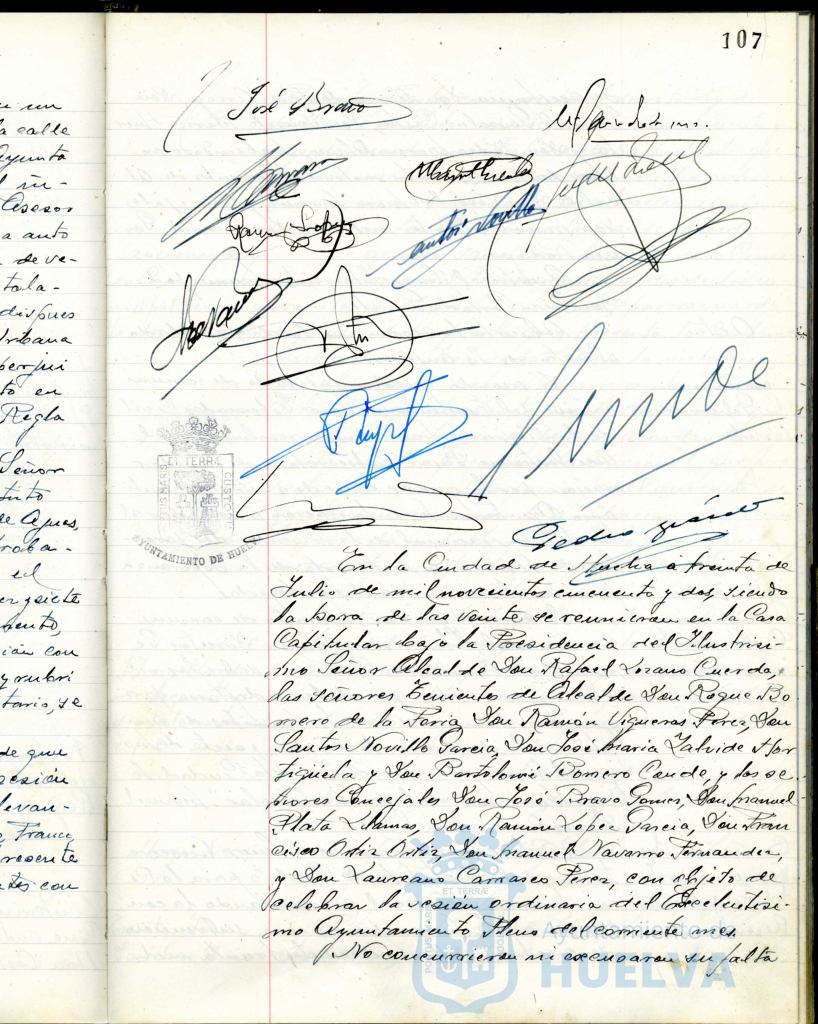 107
un
la calle
Ayunta
Asesor
a auto
de ve-
tala-
dispues
Urbana
perjui
to en
Regla
Señor
de Aguas,
roba-
el
y siete
mento,
ión con
y rubri
tario, se
de que
sesión
levan-
Franco,
presente
tes con
José Bravo
Ramón Lopez
Antonio Novillo
ET TERRÆ
CUSTODIA
AYUNTAMIENTO DE HUELVA
Pedro
En la Ciudad de Huelva a treinta de
Julio de mil novecientos cincuenta y dos, siendo
la hora de las veinte se reunieron en la Casa
Capitular bajo la Presidencia del Ilustrisi-
mo Señor Alcalde Don Rafael Lozano Cuerda,
los señores Tenientes de Alcalde Don Roque Ro
mero de la Feria, Don Ramón Vigueras Perez, Don
Santos Novillo Garcia, Don José Maria Zalvide Hor
tigüela y Don Bartolomé Romero Conde, y los se-
ñores Concejales Don José Bravo Gomez, Don Manuel
Plata Llamas, Don Ramón Lopez Garcia, Don Fran
cisco Ortiz Ortiz, Don Manuel Navarro Fernandez,
y Don Laureano Carrasco Perez, con objeto de
celebrar la sesión ordinaria del Excelentisi-
mo Ayuntamiento Pleno del corriente mes.
No concurrieron ni excusaron su falta
ET TERRÆ
Ayuntamiento de
HUELVA